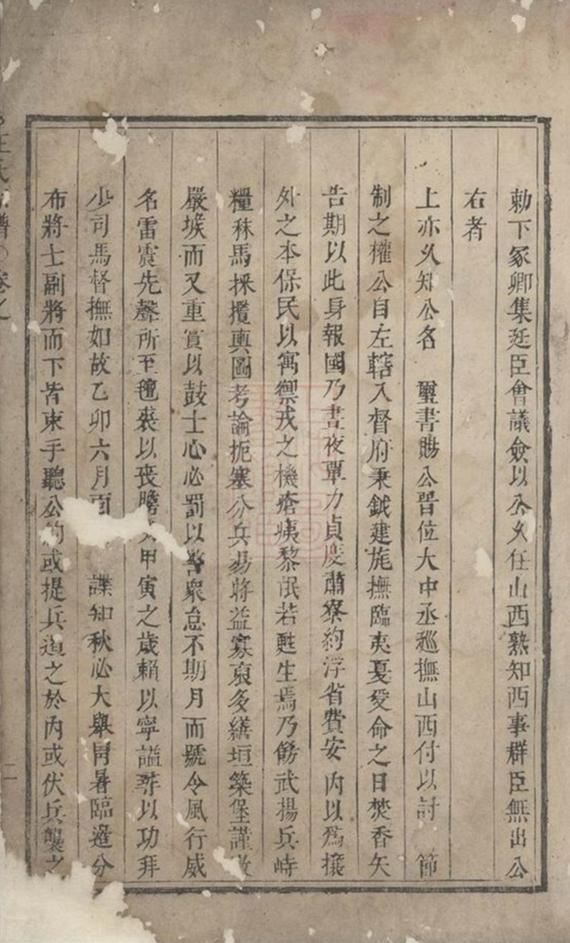 勅下冢卿集廷臣會議僉以公久任山西熟知西事群臣無出公
右者
上亦久知公名 璽書賜公晋位大中丞廵撫山西付以討 節
制之權公自左轄入督府秉鉞建旄撫臨夷夏受命之日焚香矢
告期以此身報國乃晝夜單力貞度肅寮約浮省費安内以為攘
外之本保民以寓禦戎之機瘡痍黎氓若甦生焉乃飭武揚兵峙
糧秣馬採攬輿圖考論扼塞分兵易將益寡裒多繕垣築堡謹
嚴堠而又重賞以鼓士心必罰以警衆怠不期月而號令風行威
名雷震先聲所至氊裘以喪膽 甲寅之歲賴以寧謐薦以功拜
少司馬督撫如故乙卯六月 諜知秋必大舉冐暑臨邉分
布將士副將而下皆束手聽公約或提兵遏之於内或伏兵襲之
王氏 譜 卷之
二